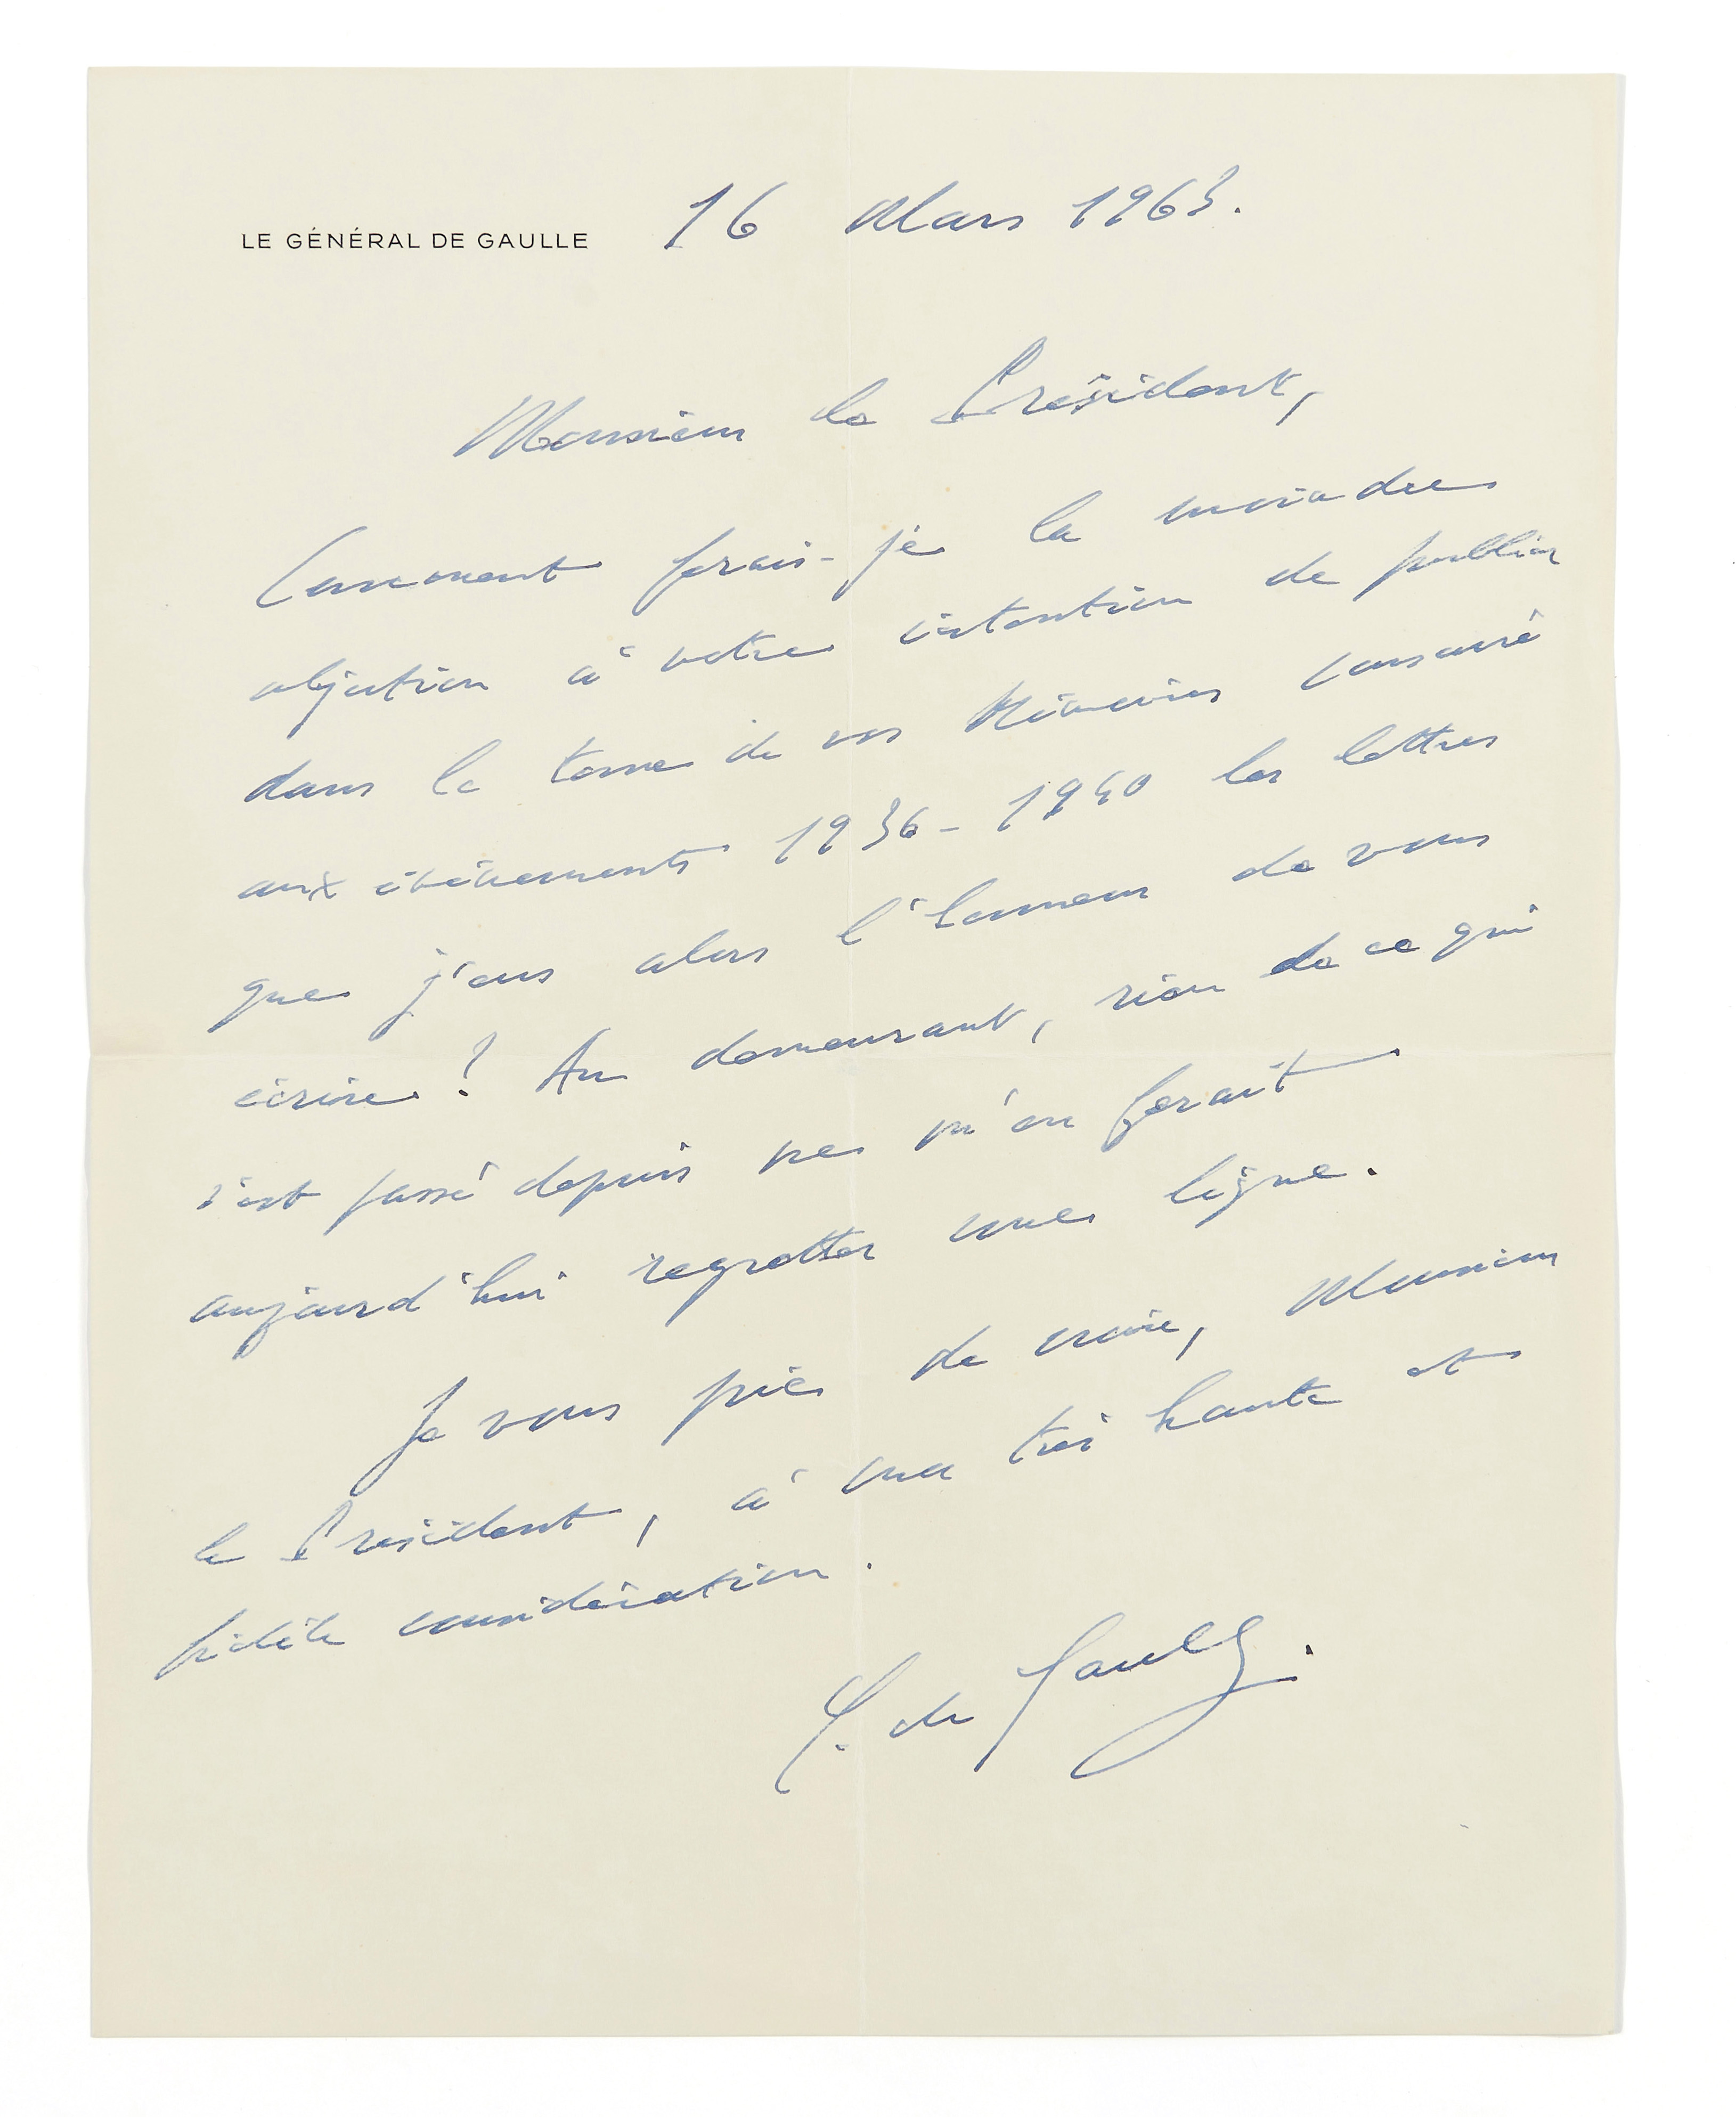 LE GÉNÉRAL DE GAULLE 16 Mars 1963.
Monsieur le Président,
Comment ferais-je la moindre
objection à votre intention de publier
dans le tome de vos Mémoires consacré
aux événements 1936-1940 les lettres
que j'eus alors l'honneur de vous
écrire? Au demeurant, rien de ce qui
s'est passé depuis ne m'en ferait
aujourd'hui regretter une ligne.
Je vous prie de croire, Monsieur
le Président, à ma très haute et
fidèle considération.
C. de Gaulle.